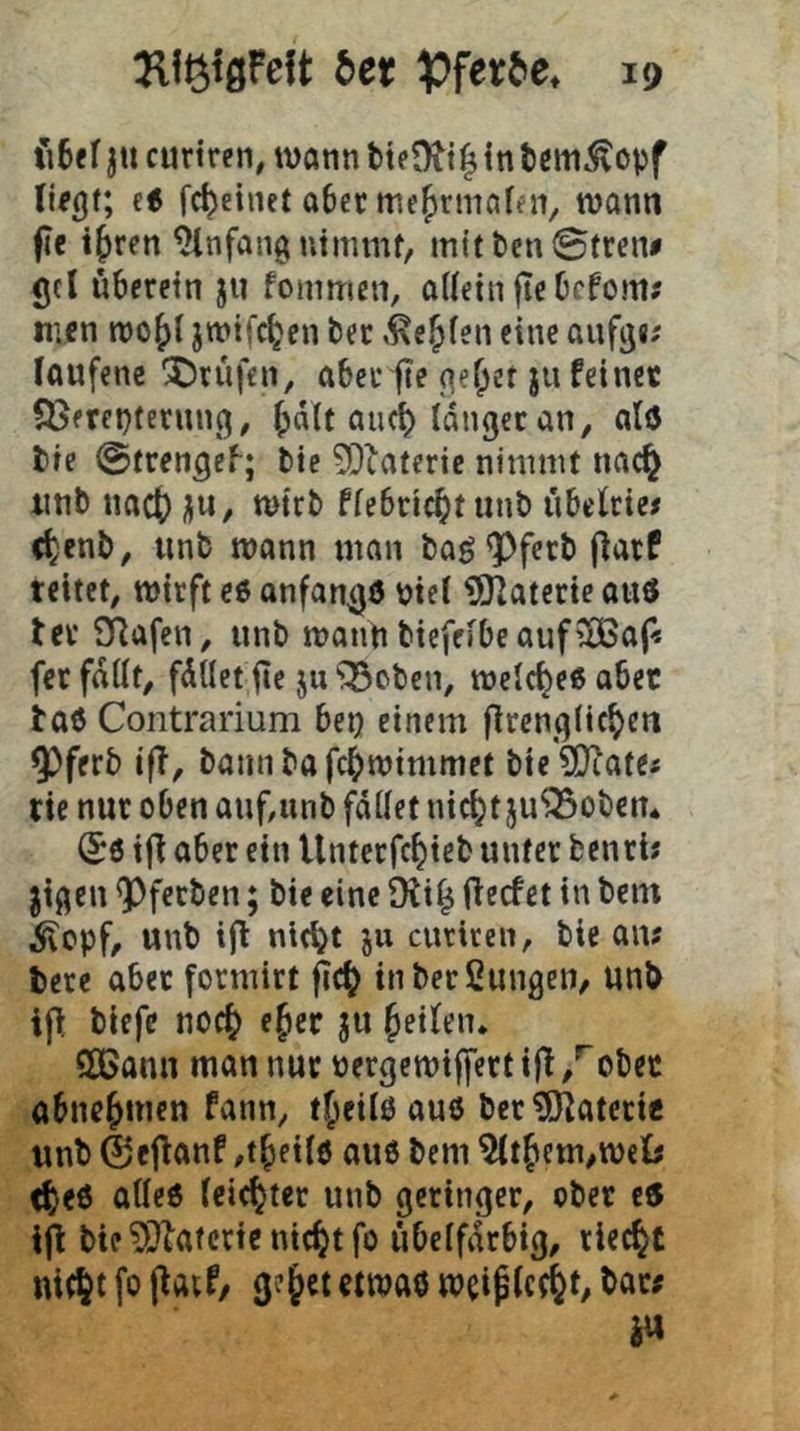 Ritzigkeit der Pferde. 19
übel zu curiren, wann die Ritz in dem Kopf
liegt; es scheinet aber mehrmalen, wann
sie ihren Anfang nimmt, mit den Stren-
gel überein zu kommen, allein sie bekom-
men wohl zwischen der Kehlen eine aufge-
laufene Drüsen, aber sie gehet zu keiner
Vereyterung, hält auch länger an, als
die Strengel; die Materie nimmt nach
und nach zu, wird klebricht und übelrie-
chend, und wann man das Pferd stark
reitet, wirft es anfangs viel Materie aus
der Nasen, und wann dieselbe auf Was-
ser fällt, fället sie zu Boden, welches aber
das Contrarium bey einem strenglichen
Pferd ist, dann da schwimmet die Mate-
rie nur oben auf, und fället nicht zu Boden.
Es ist aber ein Unterschied unter den ri-
zigen Pferden; die eine Ritz stecket in dem
Kopf, und ist nicht zu curiren, die an-
dere aber formirt sich in der Lungen, und
ist diese noch eher zu heilen.
Wann man nur vergewissert ist, oder
abnehmen kann, theils aus der Materie
und Gestank, theils aus dem Athem, wel-
ches alles leichter und geringer, oder es
ist die Materie nicht so übelfärbig, riecht
nicht so stark, gehet etwas weißlecht, dar-
zu